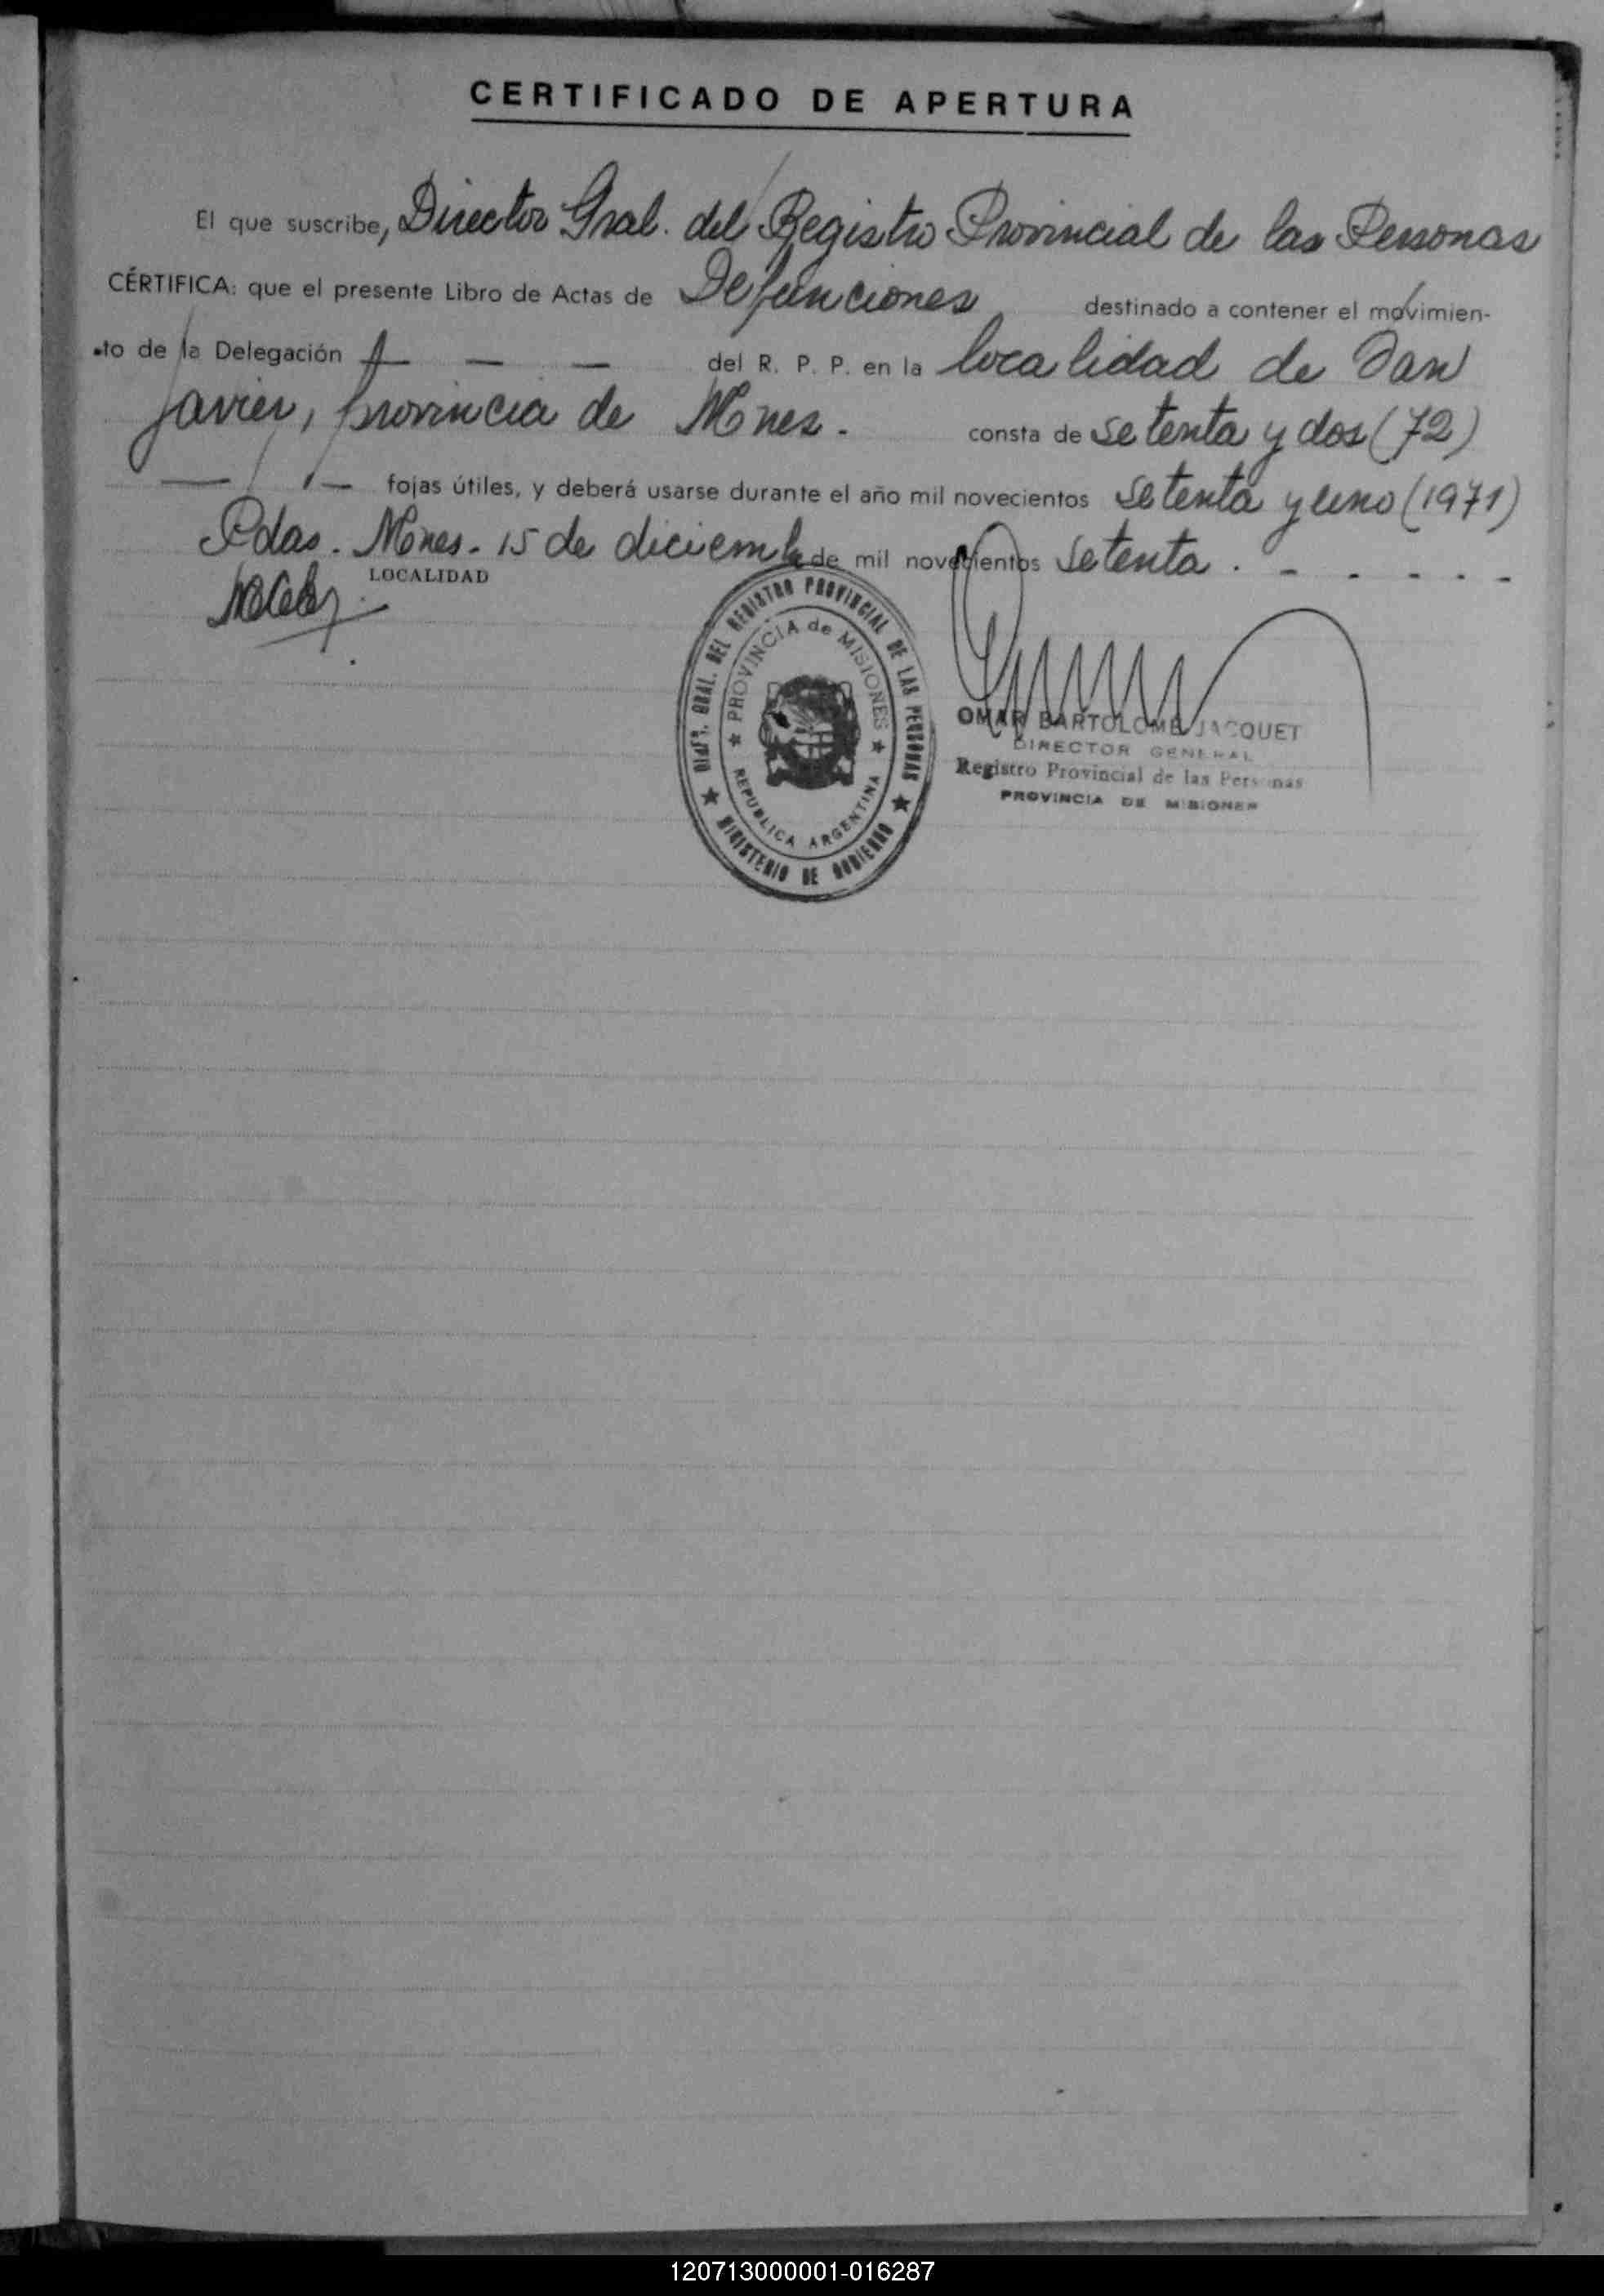 CERTIFICADO DE APERTURA
El que suscribe, Director Gral. del Registro Provincial de las Personas
CÉRTIFICA: que el presente Libro de Actas de Defunciones destinado a contener el movimien-
to de la Delegación — — — del R. P. P. en la localidad de San
Javier, provincia de Mnes. consta de setenta y dos (72)
— — fojas útiles, y deberá usarse durante el año mil novecientos setenta y uno (1971)
Pdas. Mnes. 15 de diciembre de mil novecientos setenta . - - - - - -
LOCALIDAD
DIREC. GRAL. DEL REGISTRO PROVINCIAL DE LAS PERSONAS
★ MINISTERIO DE GOBIERNO ★
★ PROVINCIA de MISIONES ★
REPUBLICA ARGENTINA
OMAR BARTOLOME JACQUET
DIRECTOR GENERAL
Registro Provincial de las Personas
PROVINCIA DE MISIONES
120713000001-016287